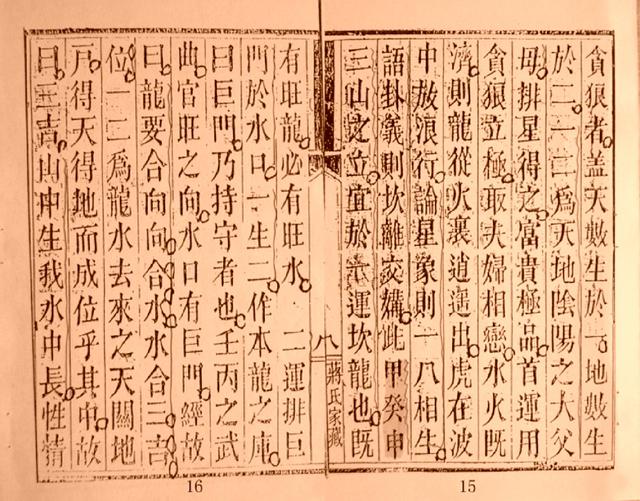 貪狼者蓋天數生於一地數生
於二一二爲天地陰陽之大父
母排星得之富貴極品首運用
貪狼立極取夫婦相戀水火既
濟則龍從火裏逍遥出虎在波
中放浪行論星象則一八相生
語卦義則坎離交媾此甲癸申
三山之立宜於一運坎龍也既
有旺龍必有旺水 二運排巨
門於水口一生二作本龍之庫
曰巨門乃持守者也壬丙之武
曲官旺之向水口有巨門經故
曰龍要合向向合水水合三吉
位一二爲龍水去來之天關地
戸得天得地而成位乎其中故
曰三吉山中生我水中長性情
八
蔣氏家藏
15
16